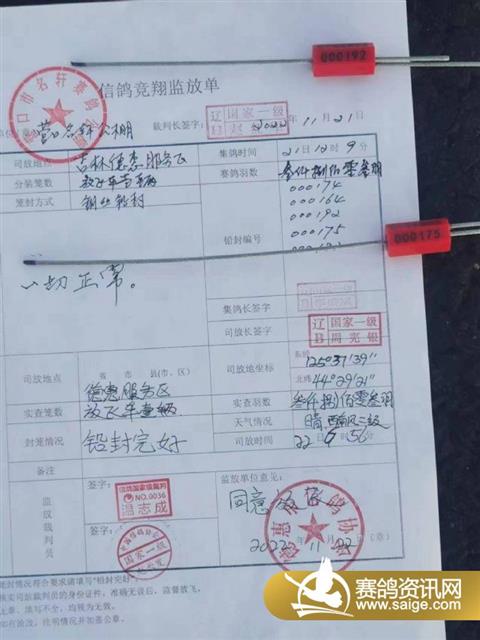 000192
信鸽竞翔监放单
营口市名轩赛鸽公棚
裁判长签字: 辽B 国家一级
2022年11月21日
司放地点 吉林德惠服务区 集鸽时间 21日12时9分
分装笼数 放飞车壹辆 赛鸽羽数 叁仟捌佰零叁羽
笼封方式 铅丝铅封 铅封编号 000174
000164
000192
000175
000175
一切正常。
集鸽长签字
司放长签字 辽B 国家一级 周亮银
司放地点 省 市 县(市、区) 德惠服务区 司放地坐标 东经 125°37′39″
北纬 44°29′21″
实查笼数 放飞车壹辆 实查羽数 叁仟捌佰零叁羽
封笼情况 铅封完好 天气情况 晴 西南风三级
司放时间 22日6时56分
备注
监放裁判员 签字: 信鸽国家级裁判 NO.0036 温志成 监放单位意见:
签字: 国家一级 同意放飞
2022.11.22 (章)
赛鸽资讯网
www.saige.com